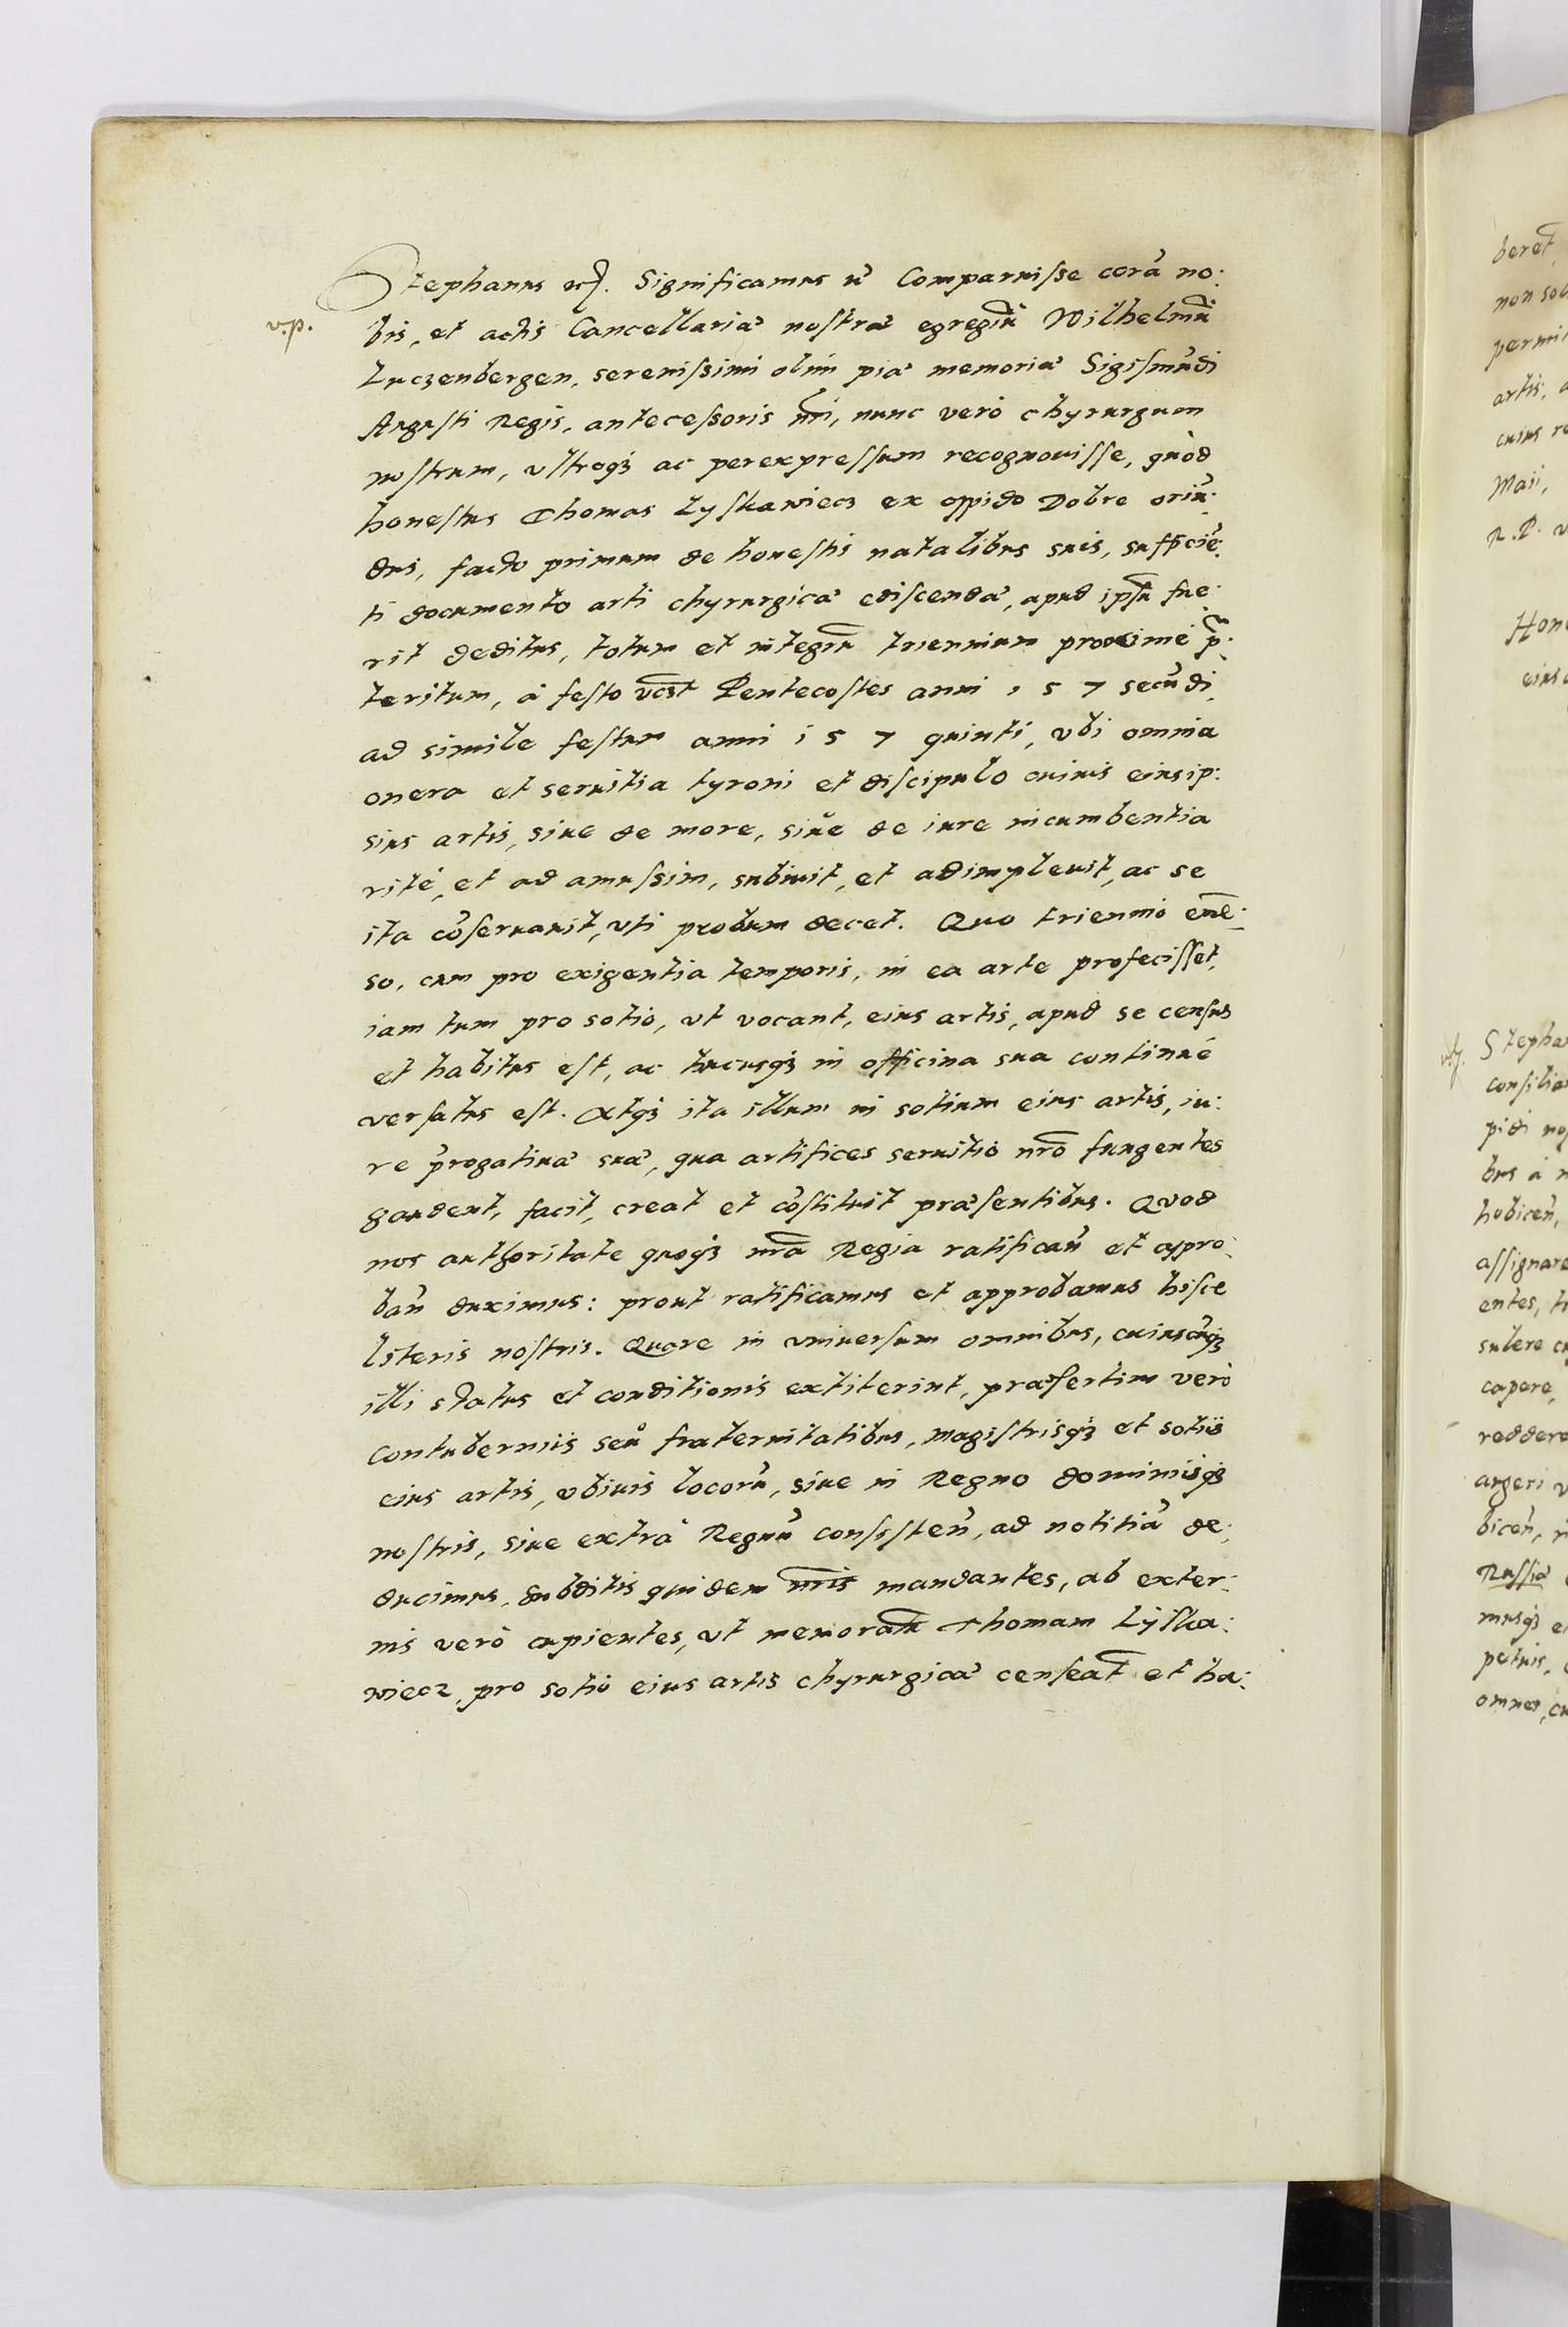 Stephanus etc. Significamus ũ Comparuisse corã no:
v.p.
bis, et actis Cancellariæ nostræ egregiũ Wilhelmũ
Luczenbergen, serenissimi olim piæ memoriæ Sigismũdi
Augusti Regis, antecessoris nri, nunc verò chyrurgum
nostrum, vltroq₃ ac per expressum recognouisse, quòd
honestus Thomas Lyskawiecz ex oppido Dobre oriũ:
dus, facto primum de honestis natalibus suis, sufficiẽ:
ti documento arti chyrurgicæ ediscendæ, apud ipsũ fue:
rit deditus, totum et integrũ triennium proximè p̃:
teritum, à festo vcꝫt Pentecostes anni 1 5 7 secũdi,
ad simile festum anni 1 5 7 quinti, vbi omnia
onera et seruitia tyroni et discipulo cuiuis eius ip:
sius artis, siue de more, siue de iure incumbentia
ritè, et ad amussim, subiuit, et adimpleuit, ac se
ita cõseruauit, vti probum decet. Quo triennio emẽ:
so, cum pro exigentia temporis, in ea arte profecisset,
iam tum pro sotio, vt vocant, eius artis, apud se census
et habitus est, ac hucusq₃ in officina sua continuè
versatus est. Atq₃ ita illum in sotium eius artis, iu:
re p̃rogatiuæ suæ, qua artifices seruitio nrõ fungentes
gaudent, facit, creat et cõstituit præsentibus. Quod
nos authoritate quoq₃ nrã Regia ratificañ et appro:
bañ duximus: prout ratificamus et approbamus hisce
literis nostris. Quare in vniuersum omnibus, cuiuscũq₃
illi status et conditionis extiterint, præsertim verò
contuberniis seu fraternitatibus, magistrisq₃ et sotiis
eius artis, vbiuis locorũ, siue in Regno dominiisq₃
nostris, siue extrà Regnũ consisteñ, ad notitiã de:
ducimus, subditis quidem nris mandantes, ab exter:
nis verò cupientes, vt memoratũ Thomam Lyska:
wiecz, pro sotio eius artis chyrurgicæ censeat et ha:
beret
permi
artis, a
cuius re
Maii,
Hono
eius
Stephan
consilia
pidi no
bus à n
assignare
entes, t
capere,
reddere
Russiæ
musq₃ e
petuis,
omnes, cu